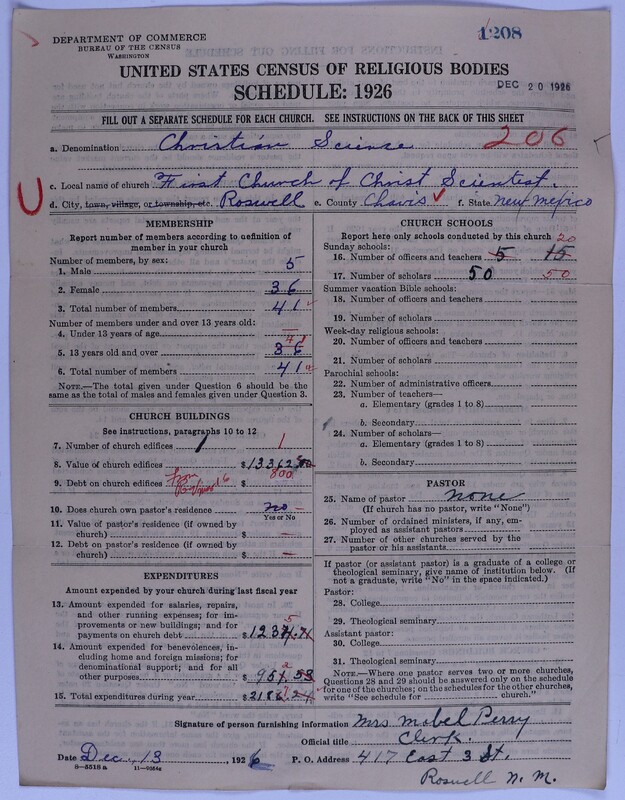 1208
DEPARTMENT OF COMMERCE
BUREAU OF THE CENSUS
WASHINGTON
UNITED STATES CENSUS OF RELIGIOUS BODIES
SCHEDULE: 1926
DEC 20 1926
FILL OUT A SEPARATE SCHEDULE FOR EACH CHURCH. SEE INSTRUCTIONS ON THE BACK OF THIS SHEET
a. Denomination Christian Science 206
c. Local name of church First Church of Christ Scientest.
d. City, town, village, or township, etc. Roswell e. County Chavis f. State New Mexico
MEMBERSHIP
Report number of members according to definition of
member in your church
Number of members, by sex:
1. Male 5
2. Female 36
3. Total number of members 41
Number of members under and over 13 years old:
4. Under 13 years of age —
5. 13 years old and over 36 41
6. Total number of members 41
NOTE.—The total given under Question 6 should be the
same as the total of males and females given under Question 3.
CHURCH BUILDINGS
See instructions, paragraphs 10 to 12
7. Number of church edifices 1 1
8. Value of church edifices $13362
9. Debt on church edifices 800
10. Does church own pastor's residence no —
Yes or No
11. Value of pastor's residence (if owned by
church) $ —
12. Debt on pastor's residence (if owned by
church) $ —
EXPENDITURES
Amount expended by your church during last fiscal year
13. Amount expended for salaries, repairs,
and other running expenses; for im-
provements or new buildings; and for
payments on church debt $1234.71
14. Amount expended for benevolences, in-
cluding home and foreign missions; for
denominational support; and for all
other purposes $951.53
15. Total expenditures during year $2186.24
CHURCH SCHOOLS
Report here only schools conducted by this church
Sunday schools: 20
16. Number of officers and teachers 5 15
17. Number of scholars 50 50
Summer vacation Bible schools:
18. Number of officers and teachers
19. Number of scholars
Week-day religious schools:
20. Number of officers and teachers
21. Number of scholars
Parochial schools:
22. Number of administrative officers
23. Number of teachers—
a. Elementary (grades 1 to 8)
b. Secondary
24. Number of scholars—
a. Elementary (grades 1 to 8)
b. Secondary
PASTOR
25. Name of pastor none
(If church has no pastor, write "None")
26. Number of ordained ministers, if any, em-
ployed as assistant pastors
27. Number of other churches served by the
pastor or his assistants
If pastor (or assistant pastor) is a graduate of a college or
theological seminary, give name of institution below. (If
not a graduate, write "No" in the space indicated.)
Pastor:
28. College
29. Theological seminary
Assistant pastor:
30. College
31. Theological seminary
NOTE.—Where one pastor serves two or more churches,
Questions 28 and 29 should be answered only on the schedule
for one of the churches; on the schedules for the other churches,
write "See schedule for church."
Signature of person furnishing information Mrs Mabel Perry
Official title Clerk.
Date Dec. 13, 1926 P. O. Address 417 East 3 St.
8—5518 a
Roswell N. M.